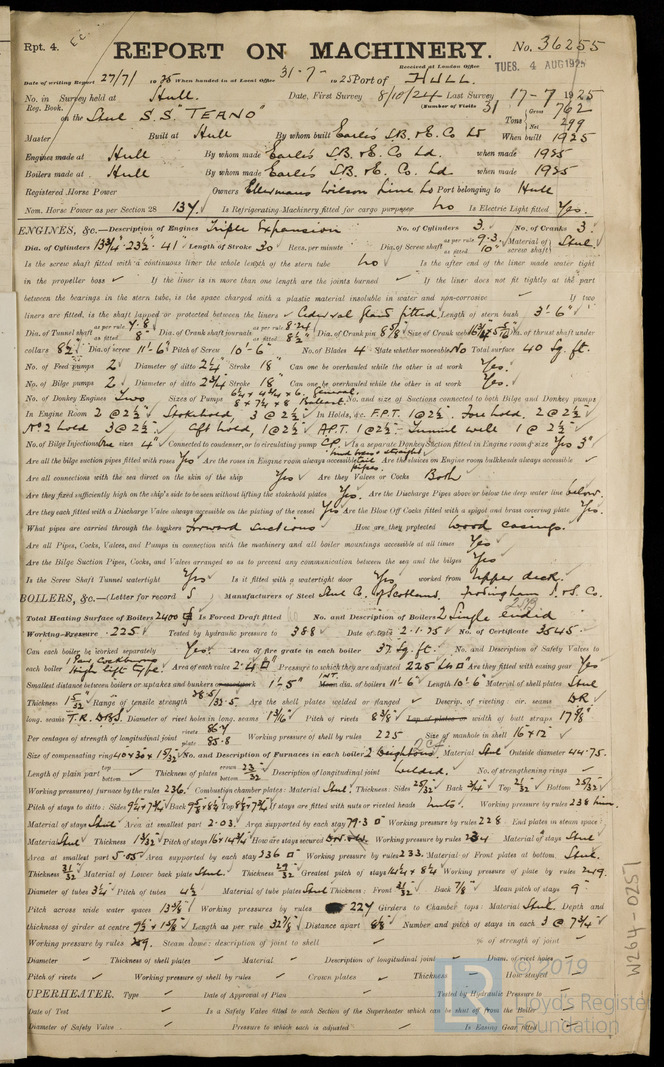 Rpt. 4.
REPORT ON MACHINERY. No. 36255
Received at London Office
TUES. 4 AUG 1925
Date of writing Report 27/7/ 1925 When handed in at Local Office 31-7- 1925 Port of HULL.
No. in Survey held at Hull. Date, First Survey 8/10/24 Last Survey 17-7 1925
Reg. Book. (Number of Visits 31
on the Steel S.S. "TEANO" Tons Gross 762 Net 299
Master Built at Hull By whom built Earle's S.B. & E. Co Ld When built 1925
Engines made at Hull By whom made Earle's S.B. & E. Co Ld. when made 1925
Boilers made at Hull By whom made Earle's S.B. & E. Co. Ld. when made 1925
Registered Horse Power Owners Ellermans Wilson Line Ld Port belonging to Hull
Nom. Horse Power as per Section 28 137. Is Refrigerating Machinery fitted for cargo purposes No Is Electric Light fitted Yes.
ENGINES, &c.—Description of Engines Triple Expansion No. of Cylinders 3. No. of Cranks 3
Dia. of Cylinders 13¾ - 23½ - 41" Length of Stroke 30 Revs. per minute Dia. of Screw shaft as per rule 9.3 as fitted 10" Material of screw shaft Steel
Is the screw shaft fitted with a continuous liner the whole length of the stern tube No Is the after end of the liner made water tight
in the propeller boss If the liner is in more than one length are the joints burned If the liner does not fit tightly at the part
between the bearings in the stern tube, is the space charged with a plastic material insoluble in water and non-corrosive If two
liners are fitted, is the shaft lapped or protected between the liners Cedervall gland fitted. Length of stern bush 3'-6"
Dia. of Tunnel shaft as per rule 7.8 as fitted 8" Dia. of Crank shaft journals as per rule 8.24 as fitted 8½" Dia. of Crank pin 8⅝" Size of Crank webs Dia. of thrust shaft under
collars 8½" Dia. of screw 11'-6" Pitch of Screw 10'-6" No. of Blades 4 State whether moveable No Total surface 40 Sq. ft.
No. of Feed pumps 2 Diameter of ditto 2¼" Stroke 18" Can one be overhauled while the other is at work Yes.
No. of Bilge pumps 2 Diameter of ditto 2¾" Stroke 18" Can one be overhauled while the other is at work Yes.
No. of Donkey Engines Two Sizes of Pumps No. and size of Suctions connected to both Bilge and Donkey pumps
In Engine Room 2 @ 2½ Stokehold, 3 @ 2½ In Holds, &c. F.P.T. 1 @ 2½ Fore hold, 2 @ 2½
No 2 hold 3 @ 2½ Aft hold, 1 @ 2½ A.P.T. 1 @ 2½ Tunnel well 1 @ 2½
No. of Bilge Injections One sizes 4" Connected to condenser, or to circulating pump C.P. Is a separate Donkey Suction fitted in Engine room & size Yes 3"
Are all the bilge suction pipes fitted with roses Yes Are the roses in Engine room always accessible Are the sluices on Engine room bulkheads always accessible
Are all connections with the sea direct on the skin of the ship Yes Are they Valves or Cocks Both
Are they fixed sufficiently high on the ship's side to be seen without lifting the stokehold plates Yes. Are the Discharge Pipes above or below the deep water line below.
Are they each fitted with a Discharge Valve always accessible on the plating of the vessel Yes Are the Blow Off Cocks fitted with a spigot and brass covering plate Yes.
What pipes are carried through the bunkers Forward Suctions How are they protected Wood casings.
Are all Pipes, Cocks, Valves, and Pumps in connection with the machinery and all boiler mountings accessible at all times Yes
Are the Bilge Suction Pipes, Cocks, and Valves arranged so as to prevent any communication between the sea and the bilges Yes
Is the Screw Shaft Tunnel watertight Yes Is it fitted with a watertight door Yes worked from Upper deck.
BOILERS, &c.—(Letter for record S) Manufacturers of Steel Steel Co. of Scotland, Frodingham I. & S. Co.
Total Heating Surface of Boilers 2400 Is Forced Draft fitted No No. and Description of Boilers 2 Single ended
Working Pressure 225 Tested by hydraulic pressure to 388 Date of test 2.1.25 No. of Certificate 3545
Can each boiler be worked separately Yes. Area of fire grate in each boiler 37 Sq. ft. No. and Description of Safety Valves to
each boiler 1 Pair Cockburns High lift type. Area of each valve Pressure to which they are adjusted 225 Are they fitted with easing gear Yes
Smallest distance between boilers or uptakes and bunkers 1'-5" dia. of boilers 11'-6" Length 10'-6" Material of shell plates Steel
Thickness Range of tensile strength 28.5/32.5 Are the shell plates welded or flanged Descrip. of riveting: cir. seams DR
long. seams T.R. D.B.S. Diameter of rivet holes in long. seams 1 3/16" Pitch of rivets 8⅜" Lap of plates or width of butt straps 17⅞"
Per centages of strength of longitudinal joint rivets 86.7 plate 85.8 Working pressure of shell by rules 225 Size of manhole in shell 16" x 12"
Size of compensating ring No. and Description of Furnaces in each boiler 2 Deightons Material Steel Outside diameter 44.75.
Length of plain part top bottom Thickness of plates crown bottom Description of longitudinal joint Welded. No. of strengthening rings
Working pressure of furnace by the rules 236. Combustion chamber plates: Material Steel Thickness: Sides Back Top Bottom
Pitch of stays to ditto: Sides Back Top If stays are fitted with nuts or riveted heads Nuts. Working pressure by rules 238
Material of stays Steel Area at smallest part 2.03. Area supported by each stay 79.3 Working pressure by rules 228 End plates in steam space:
Material Steel Thickness 1 3/32 Pitch of stays How are stays secured Working pressure by rules 234 Material of stays Steel
Area at smallest part 5.05 Area supported by each stay 236 Working pressure by rules 233. Material of Front plates at bottom Steel.
Thickness 31/32 Material of Lower back plate Steel Thickness 29/32 Greatest pitch of stays Working pressure of plate by rules 249.
Diameter of tubes 3¼" Pitch of tubes 4½ Material of tube plates Steel Thickness: Front 31/32 Back ⅞" Mean pitch of stays 9
Pitch across wide water spaces 13⅜" Working pressures by rules 227 Girders to Chamber tops: Material Steel. Depth and
thickness of girder at centre Length as per rule Distance apart Number and pitch of stays in each 3 @ 7¾"
Working pressure by rules Steam dome: description of joint to shell % of strength of joint
Diameter Thickness of shell plates Material Description of longitudinal joint Diam. of rivet holes
Pitch of rivets Working pressure of shell by rules Crown plates Thickness How stayed
UPERHEATER. Type Date of Approval of Plan Tested by Hydraulic Pressure to
Date of Test Is a Safety Valve fitted to each Section of the Superheater which can be shut off from the Boiler
Diameter of Safety Valve Pressure to which each is adjusted Is Easing Gear fitted
W264-0251
© 2019
LR
Lloyd's Register
Foundation